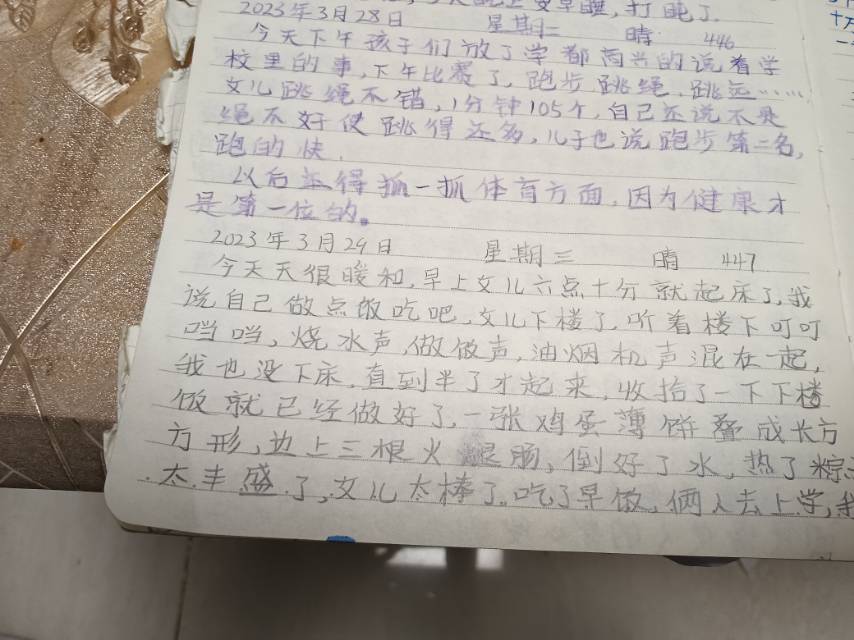 早睡,打盹了.
2023年3月28日 星期二 晴 446
今天下午孩子们放了学都高兴的说着学
校里的事,下午比赛了,跑步跳绳.跳远……
女儿跳绳不错,1分钟105个,自己还说不是
绳不好使跳得还多,儿子也说跑步第二名,
跑的快.
以后还得抓一抓体育方面,因为健康才
是第一位的。
2023年3月29日 星期三 晴 447
今天天很暖和,早上女儿六点十分就起床了,我
说自己做点饭吃吧,女儿下楼了,听着楼下叮叮
当当,烧水声,做饭声,油烟机声混在一起,
我也没下床,直到半了才起来,收拾了一下下楼
饭就已经做好了,一张鸡蛋薄饼叠成长方
方形,边上三根火腿肠,倒好了水,热了粽
太丰盛了,女儿太棒了.吃了早饭,俩人去上学,我